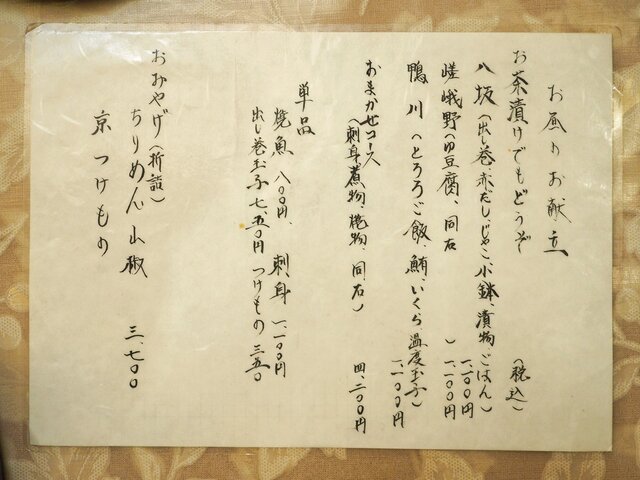 お昼のお献立
お茶漬けでもどうぞ
(税込)
八坂(出し巻、赤だし、じゃこ、小鉢、漬物、ごはん)
一、一〇〇円
嵯峨野(ゆ豆腐、同右)
一、一〇〇円
鴨川(とろろご飯、鮪、いくら、温度玉子)
一、一〇〇円
おまかせコース
(刺身、煮物、焼物、同右)
四、二〇〇円
単品
焼魚 八〇〇円、刺身 一、一〇〇円
出し巻玉子 七五〇円 つけもの 三五〇
おみやげ(折詰)
ちりめん山椒
京つけもの
三、七〇〇